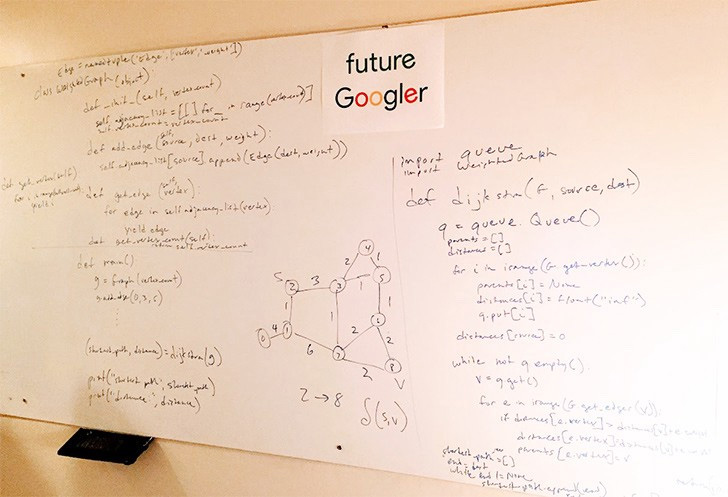 Edge = namedtuple('Edge', ['vertex', 'weight'])
class WeightedGraph(object):
def __init__(self, vertex_count)
self.adjacency_list = [[] for _ in range(vertex_count)]
self.vertex_count = vertex_count
def add_edge(self, source, dest, weight):
self.adjacency_list[source].append(Edge(dest, weight))
def get_vertex(self)
for i in
yield i
def get_edge(self, vertex):
for edge in self.adjacency_list(vertex)
yield edge
def get_vertex_count(self):
return self.vertex_count
def main()
g = Graph(vertex_count)
g.add_edge(0,3,5)
(shortest_path, distance) = dijkstra(g)
print("shortest path", shortest_path)
print("distance", distance)
future
Googler
S
2 3 3 2 4 1 5
1 1 1 1
0 4 1 6 7 2 6 2
2 8
V
2 → 8
δ(s,v)
import queue
import WeightedGraph
def dijkstra(G, source, dest)
q = queue.Queue()
parents = []
distances = []
for i in range(G.get_vertex()):
parents[i] = None
distances[i] = float("inf")
q.put[i]
distances[source] = 0
while not q.empty().
v = q.get()
for e in range(G.get_edges(v)):
if distances[e.vertex] > distances[v] +
distances[e.vertex]
parents[e.vertex] = v
shortest_path = []
end = dest
while end != None
shortest_path.append(end)